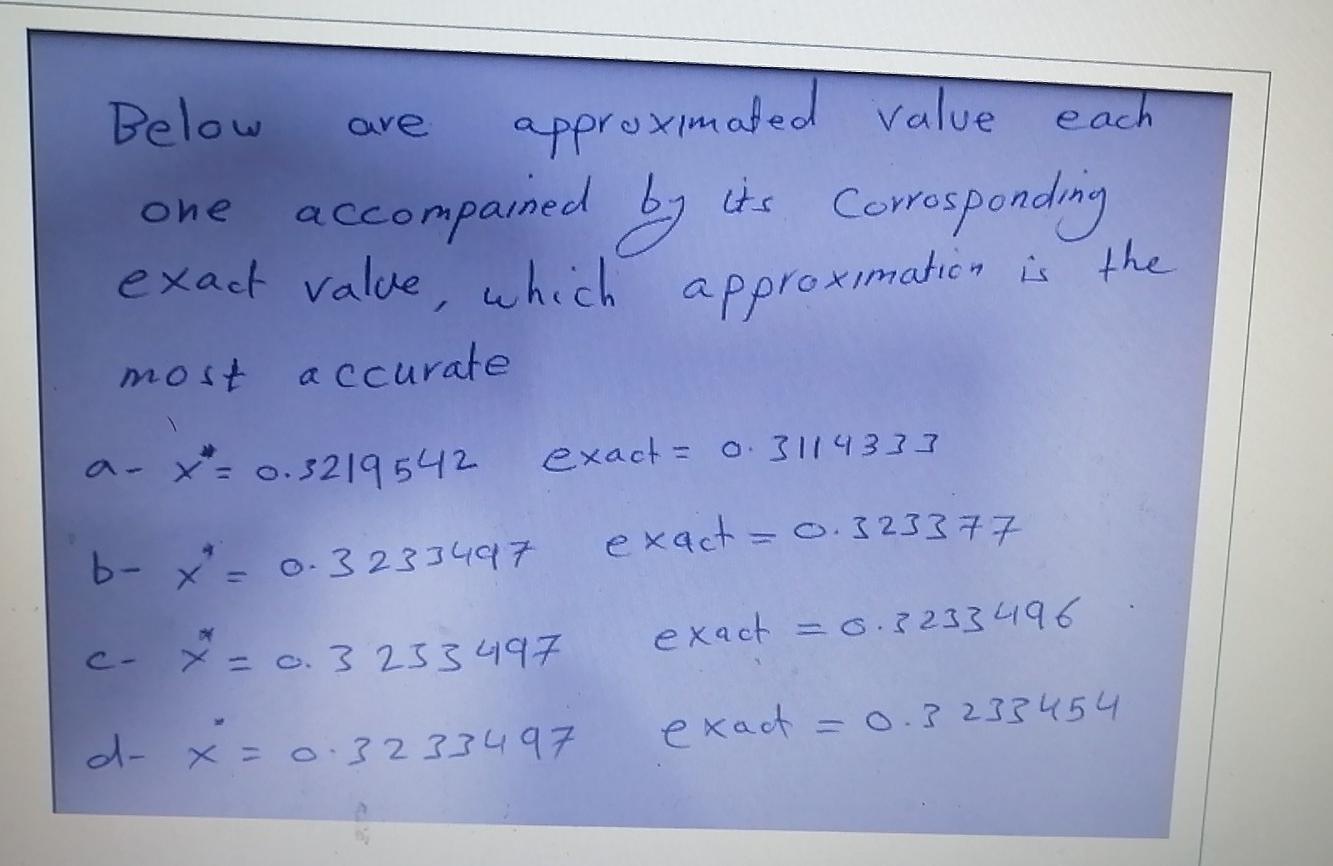 Below are approximated value each
one accompained by its Corrosponding
exact value, which approximation is the
most accurate
a- x* = 0.3219542 exact = 0.3114333
b- x* = 0.3233497 exact = 0.323377
c- x* = 0.3233497 exact = 0.3233496
d- x* = 0.3233497 exact = 0.3233454